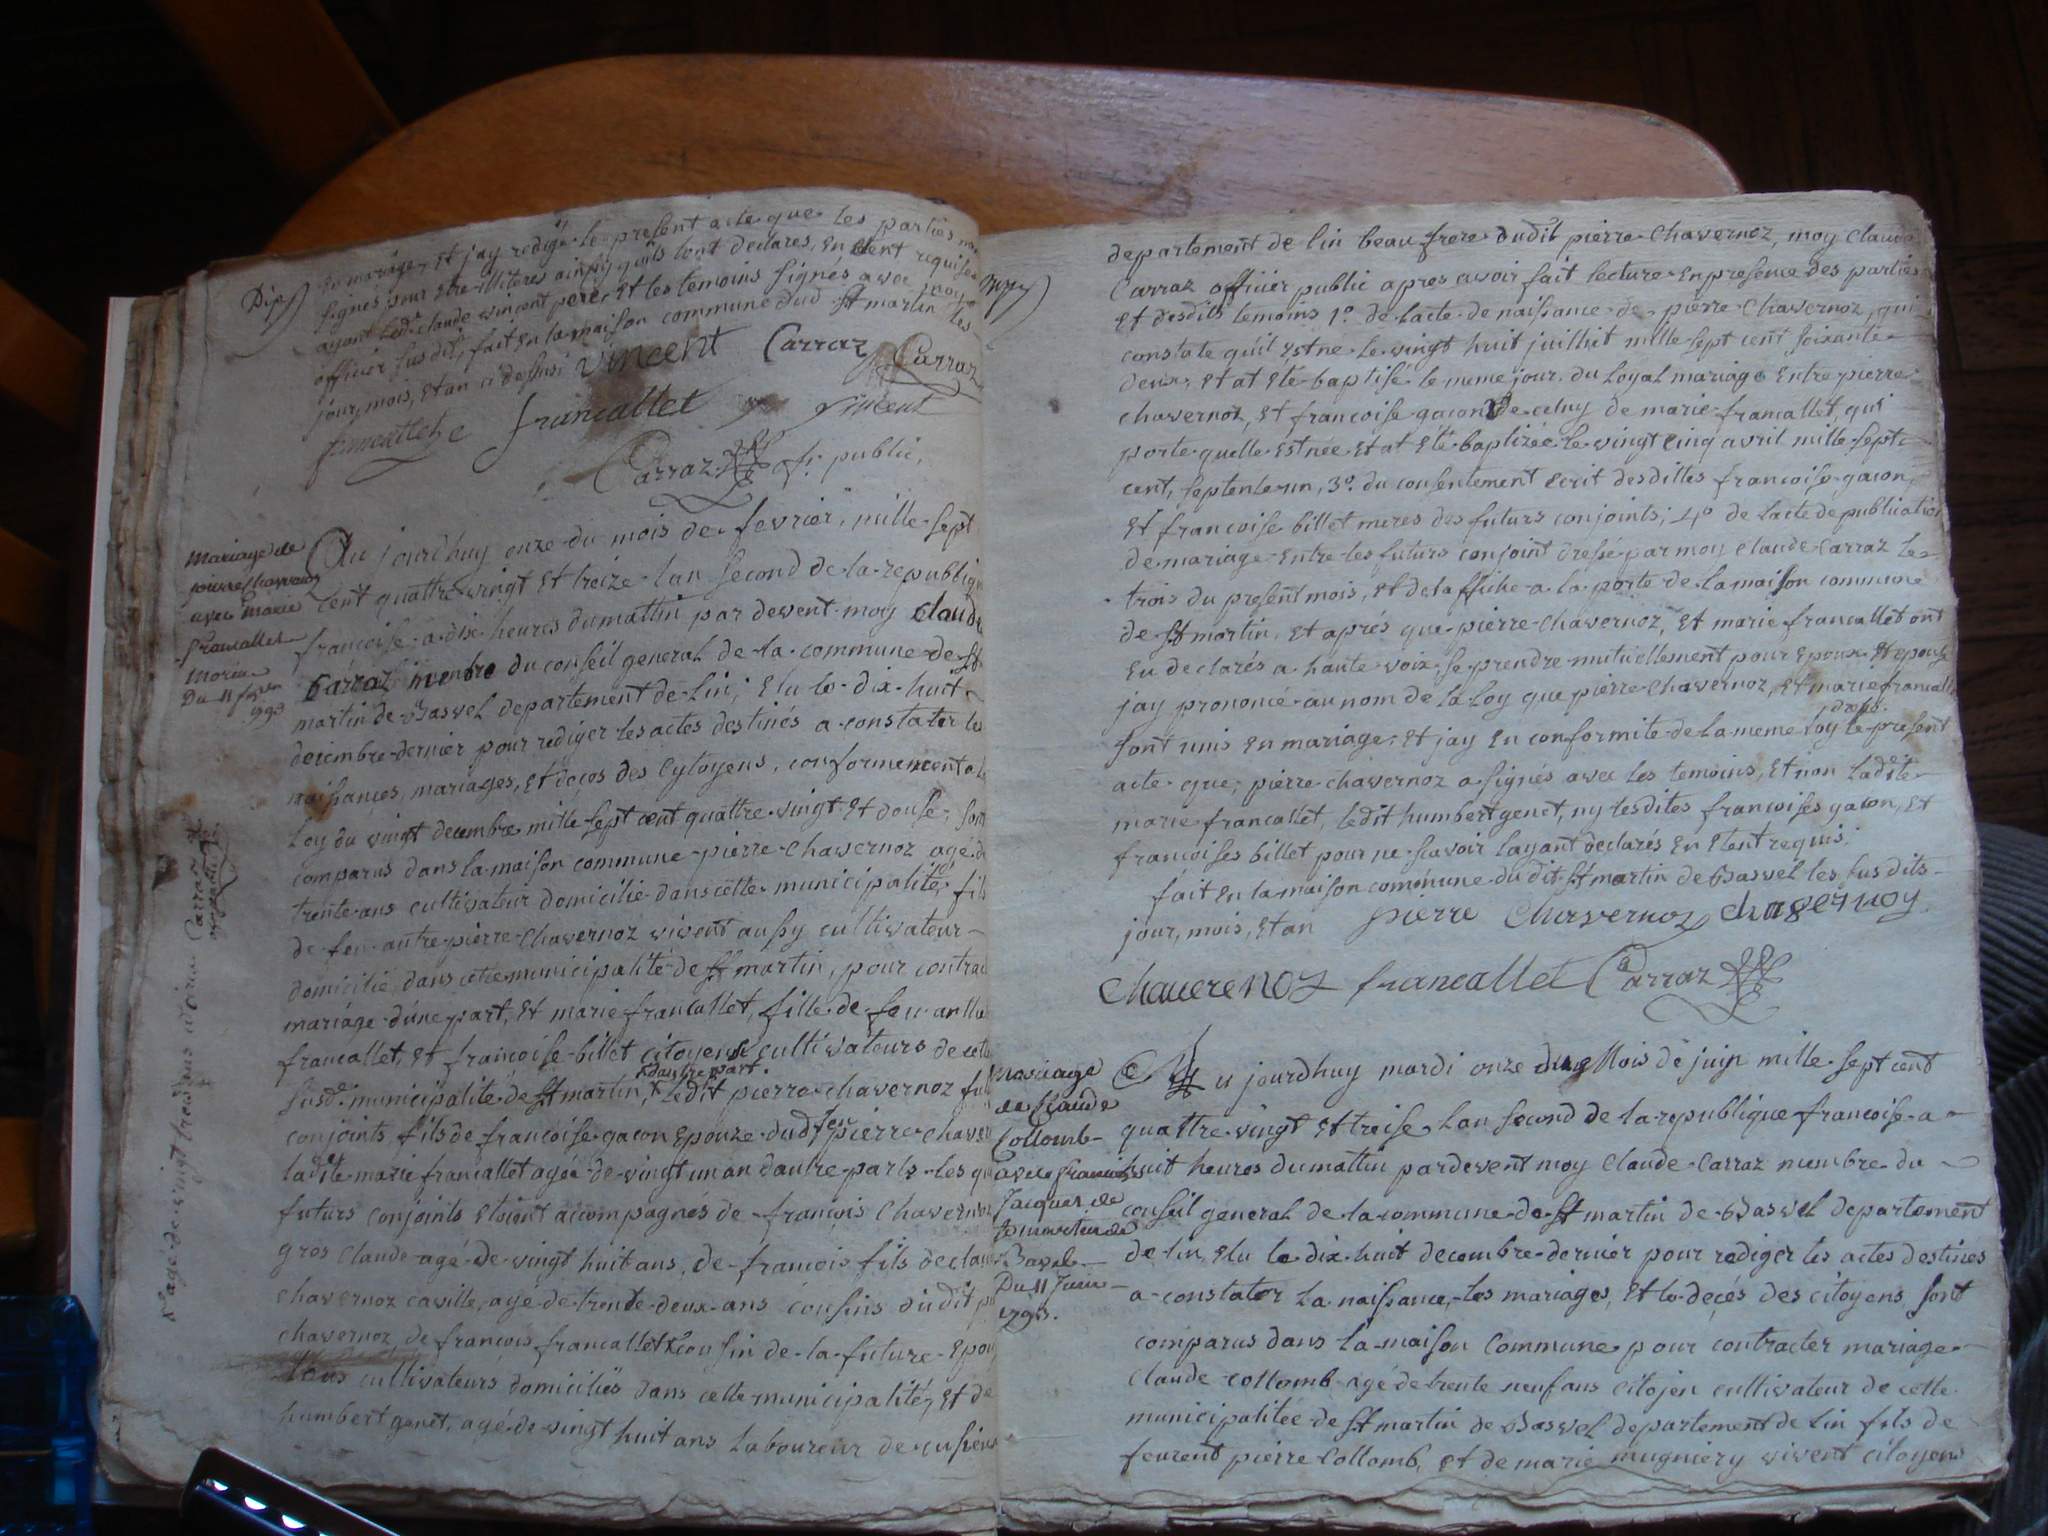 en mariage, et jay redigé le present acte que les parties
signés pour etre illiteres ainsy quils lont declarés, en etent requises
ayant led.t claude vincent pere et les temoins signés avec moy
officier susdit, fait en la maison commune dud. st martin les
jour, mois, et an ci dessus vincent Carraz Carraz
francallet vincent
Carraz of: public,
Mariage de
pierre Chavernoz
avec marie
francallet
Du 11 
1793
Au jourdhuy onze du mois de fevrier, mille sept
cent quattre vingt et treize lan second de la republique
francoise a dix heures du mattin par devent moy Claude
Carraz membre du conseil general de la commune de st
martin de Basvel departement de lin, elu le dix huit
decembre dernier pour rediger les actes destinés a constater les
naissances, mariages, et deços des Cytoyens, conformement a la
Loy du vingt decembre mille sept cent quattre vingt et douse, sont
comparus dans la maison commune pierre chavernoz agé de
trente ans cultivateur domicilié dans cette municipalité, fils
de feu autre pierre chavernoz vivent aussy cultivateur
domicilié dans cette municipalité de st martin, pour contrac
mariage dune part, et marie francallet, fille de feu
francallet, et francoise billet citoyens cultivateurs de cete
susd.e municipalité de st martin, ledit pierre chavernoz fut
daultre part.
conjoints fils de francoise gacon epouze dud feu pierre chaver
ladite marie francallet agée de vingt un an dautre part, les qu
futurs conjoints etoient accompagnés de françois chavernoz
gros claude agé de vingt huit ans, de francois fils de clau
chavernoz caville, agé de trente deux ans cousins dudit p
chavernoz, de francois francallet x cousin de la future epou
tous cultivateurs domiciliés dans cette municipalité, et de
humbert genet, agé de vingt huit ans laboureur de
x agé de vingt trois ans Carraz
departement de lin beau frere dudit pierre chavernoz, moy claude
Carraz officier public apres avoir fait lecture en presence des parties
et desdits temoins 1.º de lacte de naissance de pierre chavernoz, qui
constate quil est ne le vingt huit juillit mille sept cent soixante
deux, et at eté baptisé le meme jour, du loyal mariage entre pierre
chavernoz, et francoise gacon de celuy de marie francallet, qui
porte quelle est née et at eté baptizée le vingt cinq avril mille sept
cent, septente un, 3.º du consentement ecrit desdittes francoise gacon,
et francoise billet meres des futurs conjoints; 4.º de lacte de publication
de mariage entre les futurs conjoint dressé par moy claude carraz le
trois du present mois, et de laffiche a la porte de la maison commune
de st martin, et aprés que pierre chavernoz, et marie francallet ont
eu declarés a haute voix se prendre mutuellement pour epoux et epouse
jay prononcé au nom de la loy que pierre chavernoz, et marie francallet
sont unis en mariage, et jay en conformité de la meme loy dressé le present
acte que, pierre chavernoz a signés avec les temoins, et non ladite
marie francallet, ledit humbert genet, ny lesdites francoises gacon, et
francoises billet pour ne scavoir layant declarés en etent requis.
fait en la maison commune du dit st martin de Basvel les susdits
jour, mois, et an pierre Chavernoz chavernoy
chauerenoz francallet Carraz
Mariage
de Claude
Collomb
avec francoise
Jacquet de
st martin de
Bavel
Du 11 Juin
1793.
Au jourdhuy mardi onze du Mois de juin mille sept cent
quattre vingt et treise lan second de la republique francoise a
huit heures du mattin pardevent moy Claude Carraz membre du
conseil general de la commune de st martin de Basvel departement
de lin, elu le dix huit decembre dernier pour rediger les actes destinés
a constater la naissance, les mariages, et le decés des citoyens, sont
comparus dans la maison commune pour contracter mariage
Claude collomb agé de trente neuf ans citojen cultivateur de cette
municipalitée de st martin de Basvel departement de lin fils de
feurent pierre Collomb, et de marie mugniery vivent citoyens